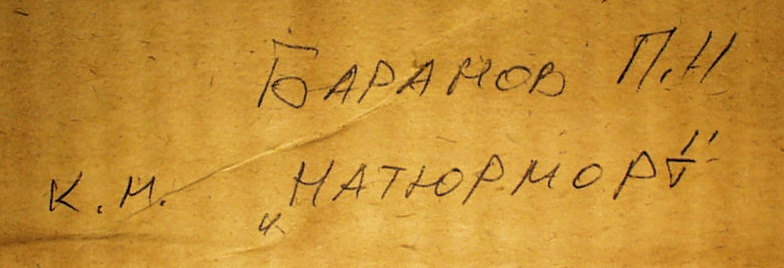 БАРАНОВ П.Н
К.М. „НАТЮРМОРТ"